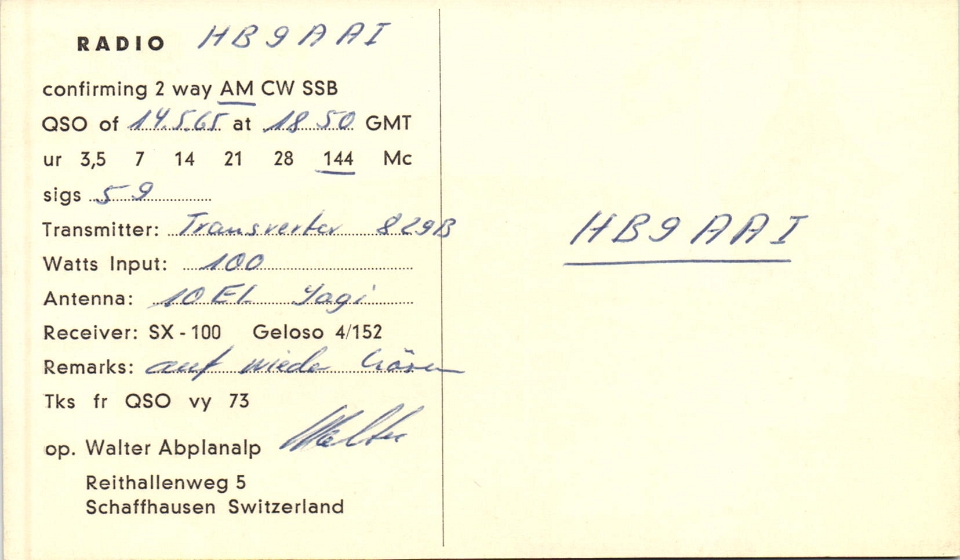 RADIO HB9AAI
confirming 2 way AM CW SSB
QSO of 14.5.65 at 18 50 GMT
ur 3,5 7 14 21 28 144 Mc
sigs 59
Transmitter: Transverter 829B
Watts Input: 100
Antenna: 10 El. Yagi
Receiver: SX-100 Geloso 4/152
Remarks: auf wieder hören
Tks fr QSO vy 73
op. Walter Abplanalp Walter
Reithallenweg 5
Schaffhausen Switzerland
HB9AAI